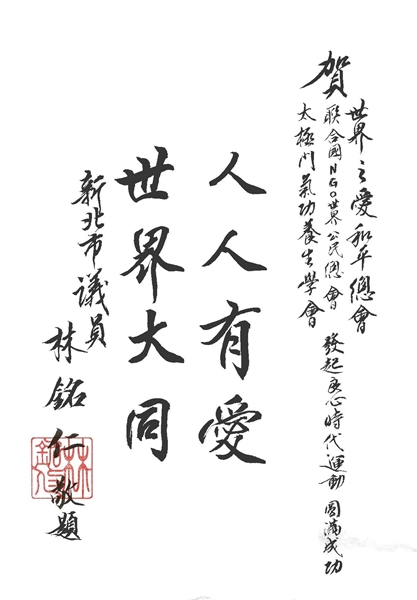 賀
世界之愛和平總會
聯合國NGO世界公民總會
太極門氣功養生學會
發起良心時代運動 圓滿成功
人人有愛
世界大同
新北市議員
林銘仁敬題